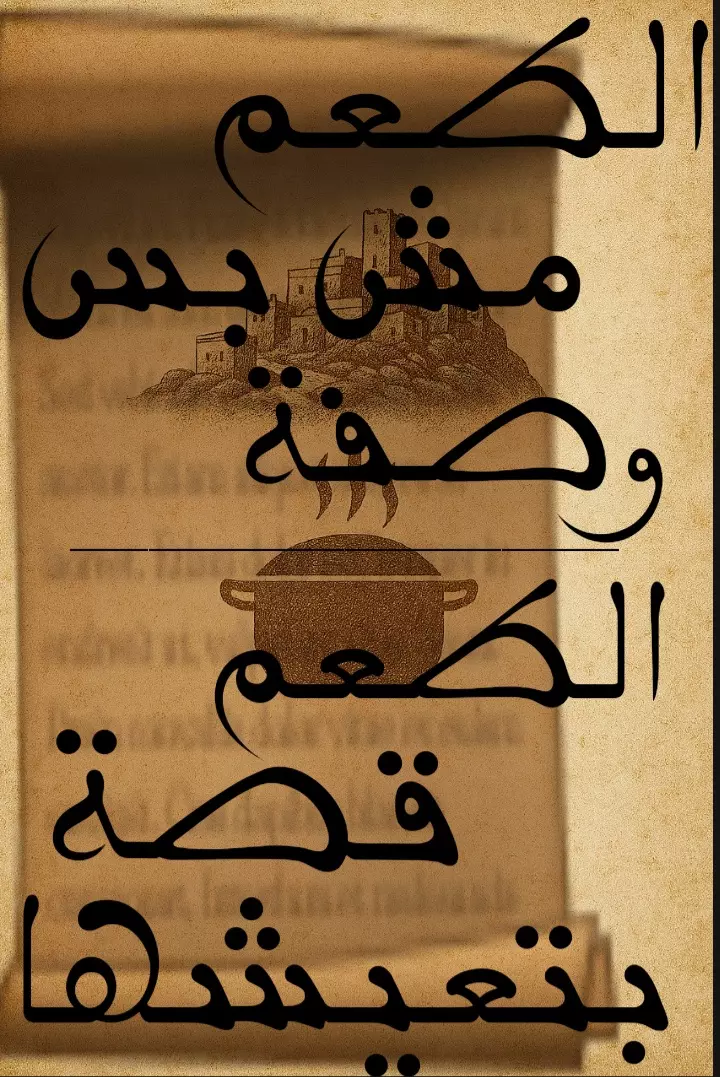 الطعم
مش بس
وصفة
الطعم
قصة
بتعيشها